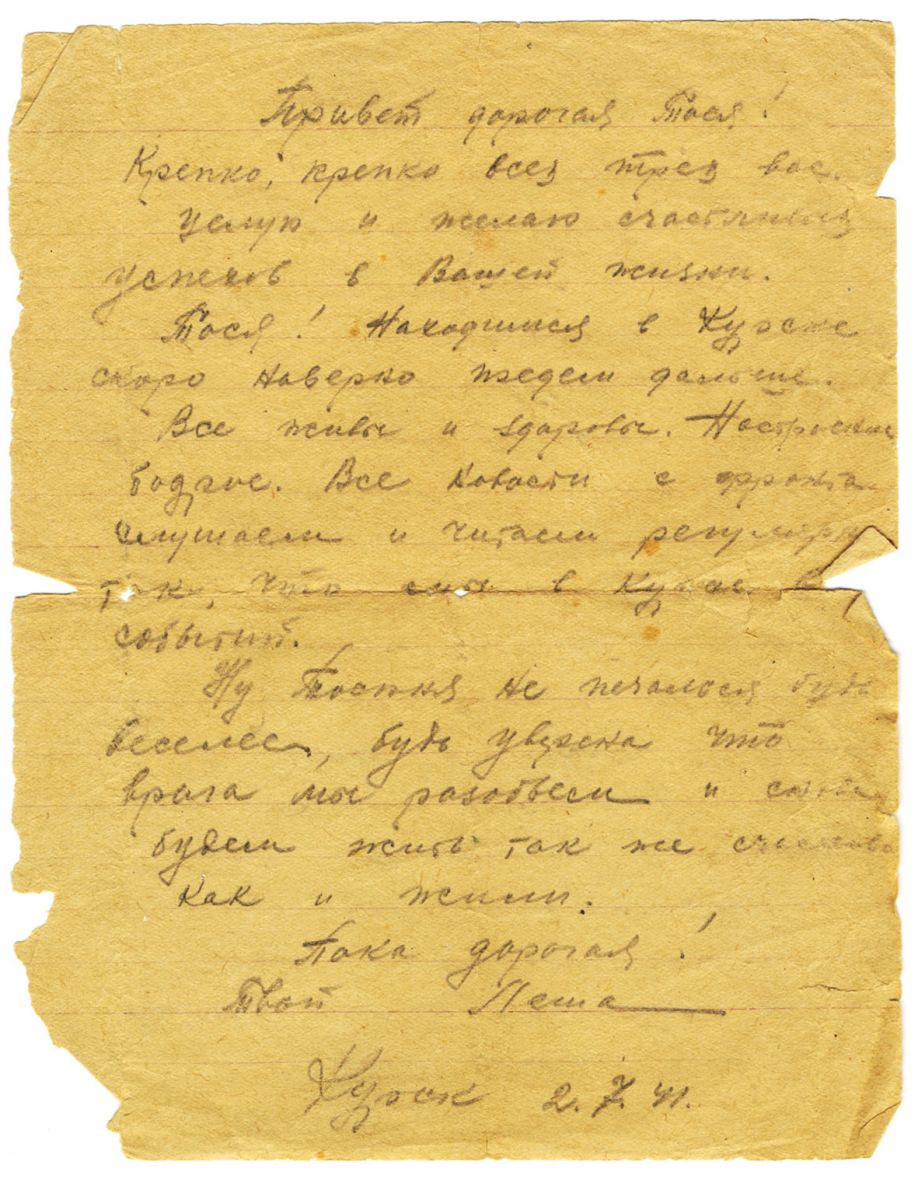 Привет дорогая Тося!
Крепко, крепко всех трех вас
целую и желаю счастливых
успехов в Вашей жизни.
Тося! Находимся в Курске
скоро наверно поедем дальше.
Все живы и здоровы. Настроение
бодрое. Все новости с фронта
слушаем и читаем регулярно
так, что мы в курсе
событий.
Ну Тосичка не печалься будь
веселее, будь уверена что
врага мы разобьем и
будем жить так же счастливо
как и жили.
Пока дорогая!
Твой Леша
Курск 2.7.41.